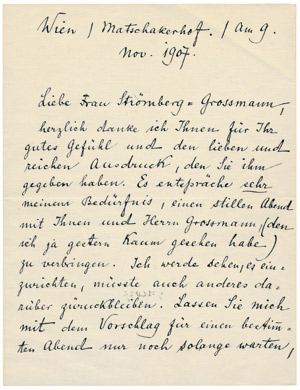 Wien / Matschakerhof. / Am 9.
Nov. 1907.
Liebe Frau Strömberg=Grossmann,
herzlich danke ich Ihnen für Ihr
gutes Gefühl und den lieben und
reichen Ausdruck, den Sie ihm
gegeben haben. Es entspräche sehr
meinem Bedürfnis, einen stillen Abend
mit Ihnen und Herrn Grossmann (den
ich ja gestern kaum gesehen habe)
zu verbringen. Ich werde sehen, es ein-
zurichten, müsste auch anderes da-
rüber zurückbleiben. Lassen Sie mich
mit dem Vorschlag für einen bestimm-
ten Abend nur noch solange warten,